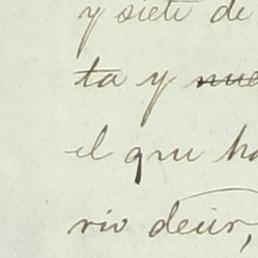 y siete de
ta y
el que ha
rio decir,